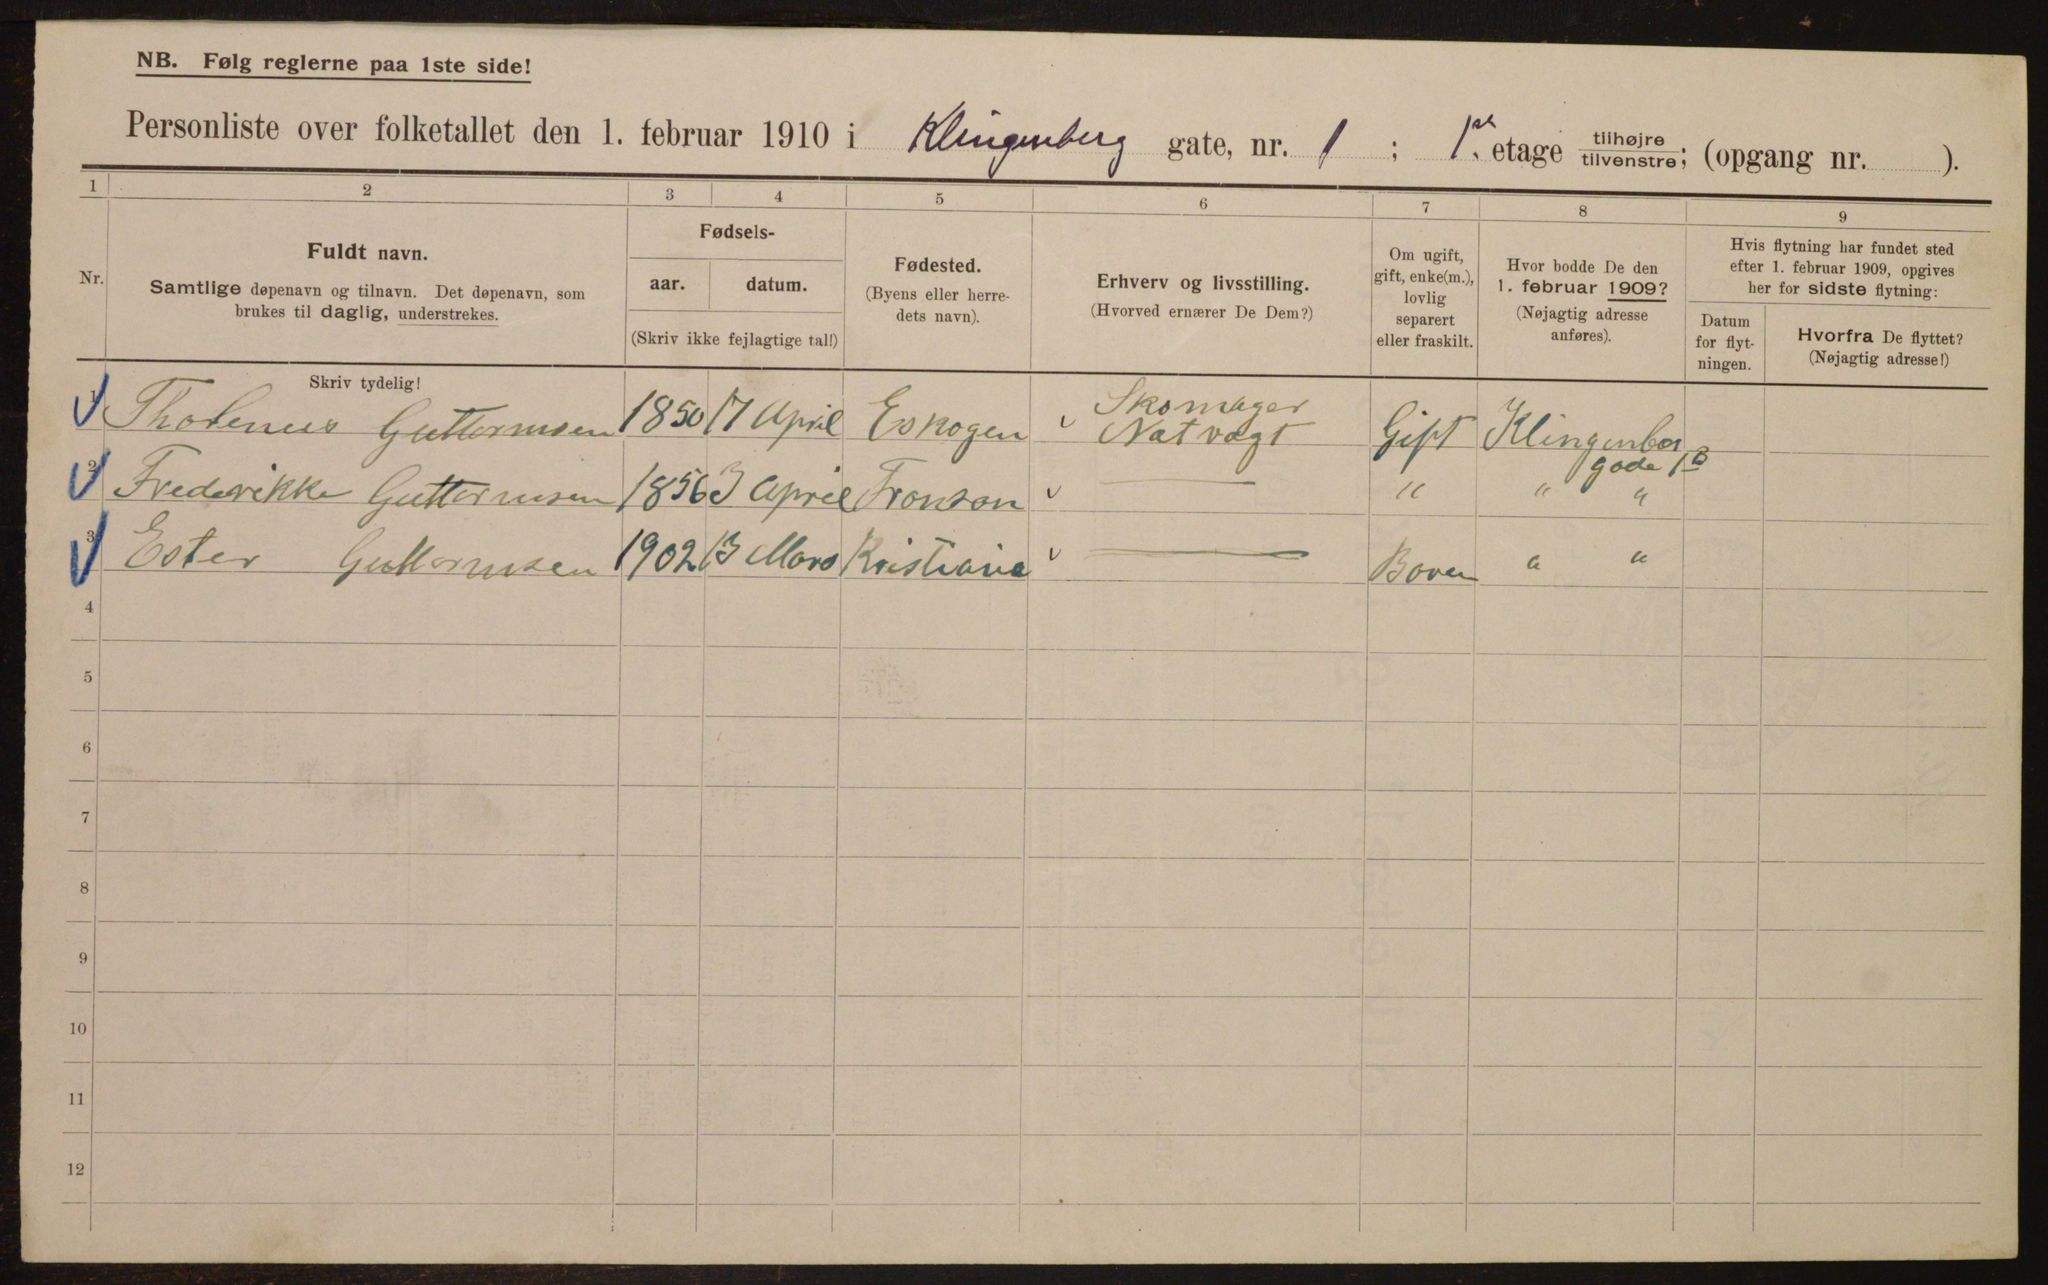 NB. Følg reglerne paa 1ste side!
Personliste over folketallet den 1. februar 1910 i Klingenberg gate, nr. 1 ; 1ste etage tilhøjre/tilvenstre; (opgang nr. ).
1 2 3 4 5 6 7 8 9
Nr.
Fuldt navn.
Samtlige døpenavn og tilnavn. Det døpenavn, som
brukes til daglig, understrekes.
Skriv tydelig!
Fødsels-
aar. datum.
(Skriv ikke fejlagtige tal!)
Fødested.
(Byens eller herre-
dets navn).
Erhverv og livsstilling.
(Hvorved ernærer De Dem?)
Om ugift,
gift, enke(m.),
lovlig
separert
eller fraskilt.
Hvor bodde De den
1. februar 1909?
(Nøjagtig adresse
anføres).
Hvis flytning har fundet sted
efter 1. februar 1909, opgives
her for sidste flytning:
Datum
for flyt-
ningen.
Hvorfra De flyttet?
(Nøjagtig adresse!)
1 Thorenus Guttormsen 1850 17 April Eskogen Skomager Natvagt Gift Klingenber
gade 1B
2 Frederikke Guttormsen 1856 3 April Tronson — " " "
3 Ester Guttormsen 1902 13 Mars Kristiania — Baren " "
4
5
6
7
8
9
10
11
12